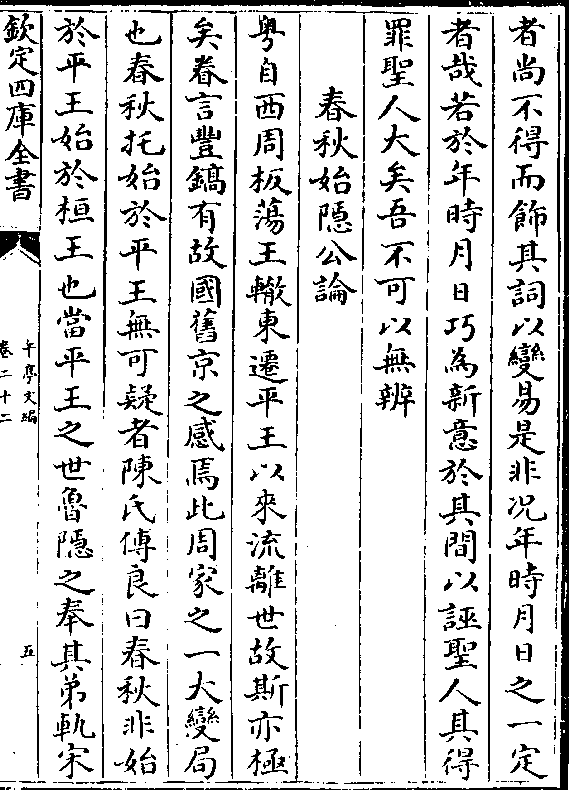 者尚不得而飾其詞以變易是非况年時月日之一定
者哉若於年時月日巧為新意於其間以誣聖人其得
罪聖人大矣吾不可以無辨
春秋始隱公論
粤自西周板蕩王轍東遷平王以來流離世故斯亦極
矣眷言豐鎬有故國舊京之感焉此周家之一大變局
也春秋托始於平王無可疑者陳氏傅良曰春秋非始
於平王始於桓王也當平王之世魯隱之奉其弟軌宋
欽定四庫全書
午亭文編
卷二十二
五